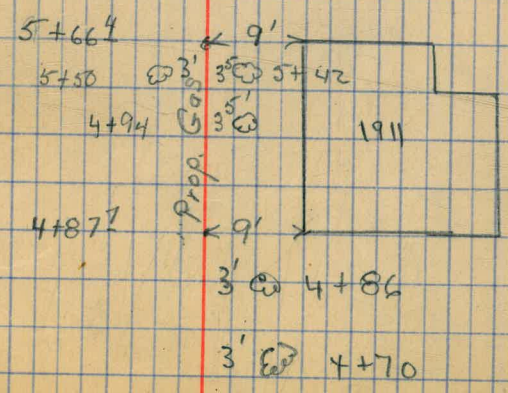 5+66⁴ 9'
5+50 3' 3⁵ 5+42
4+94 3⁵' 1911
Prop. Gas
4+87⁷ 9'
3' 4+86
3' 4+70